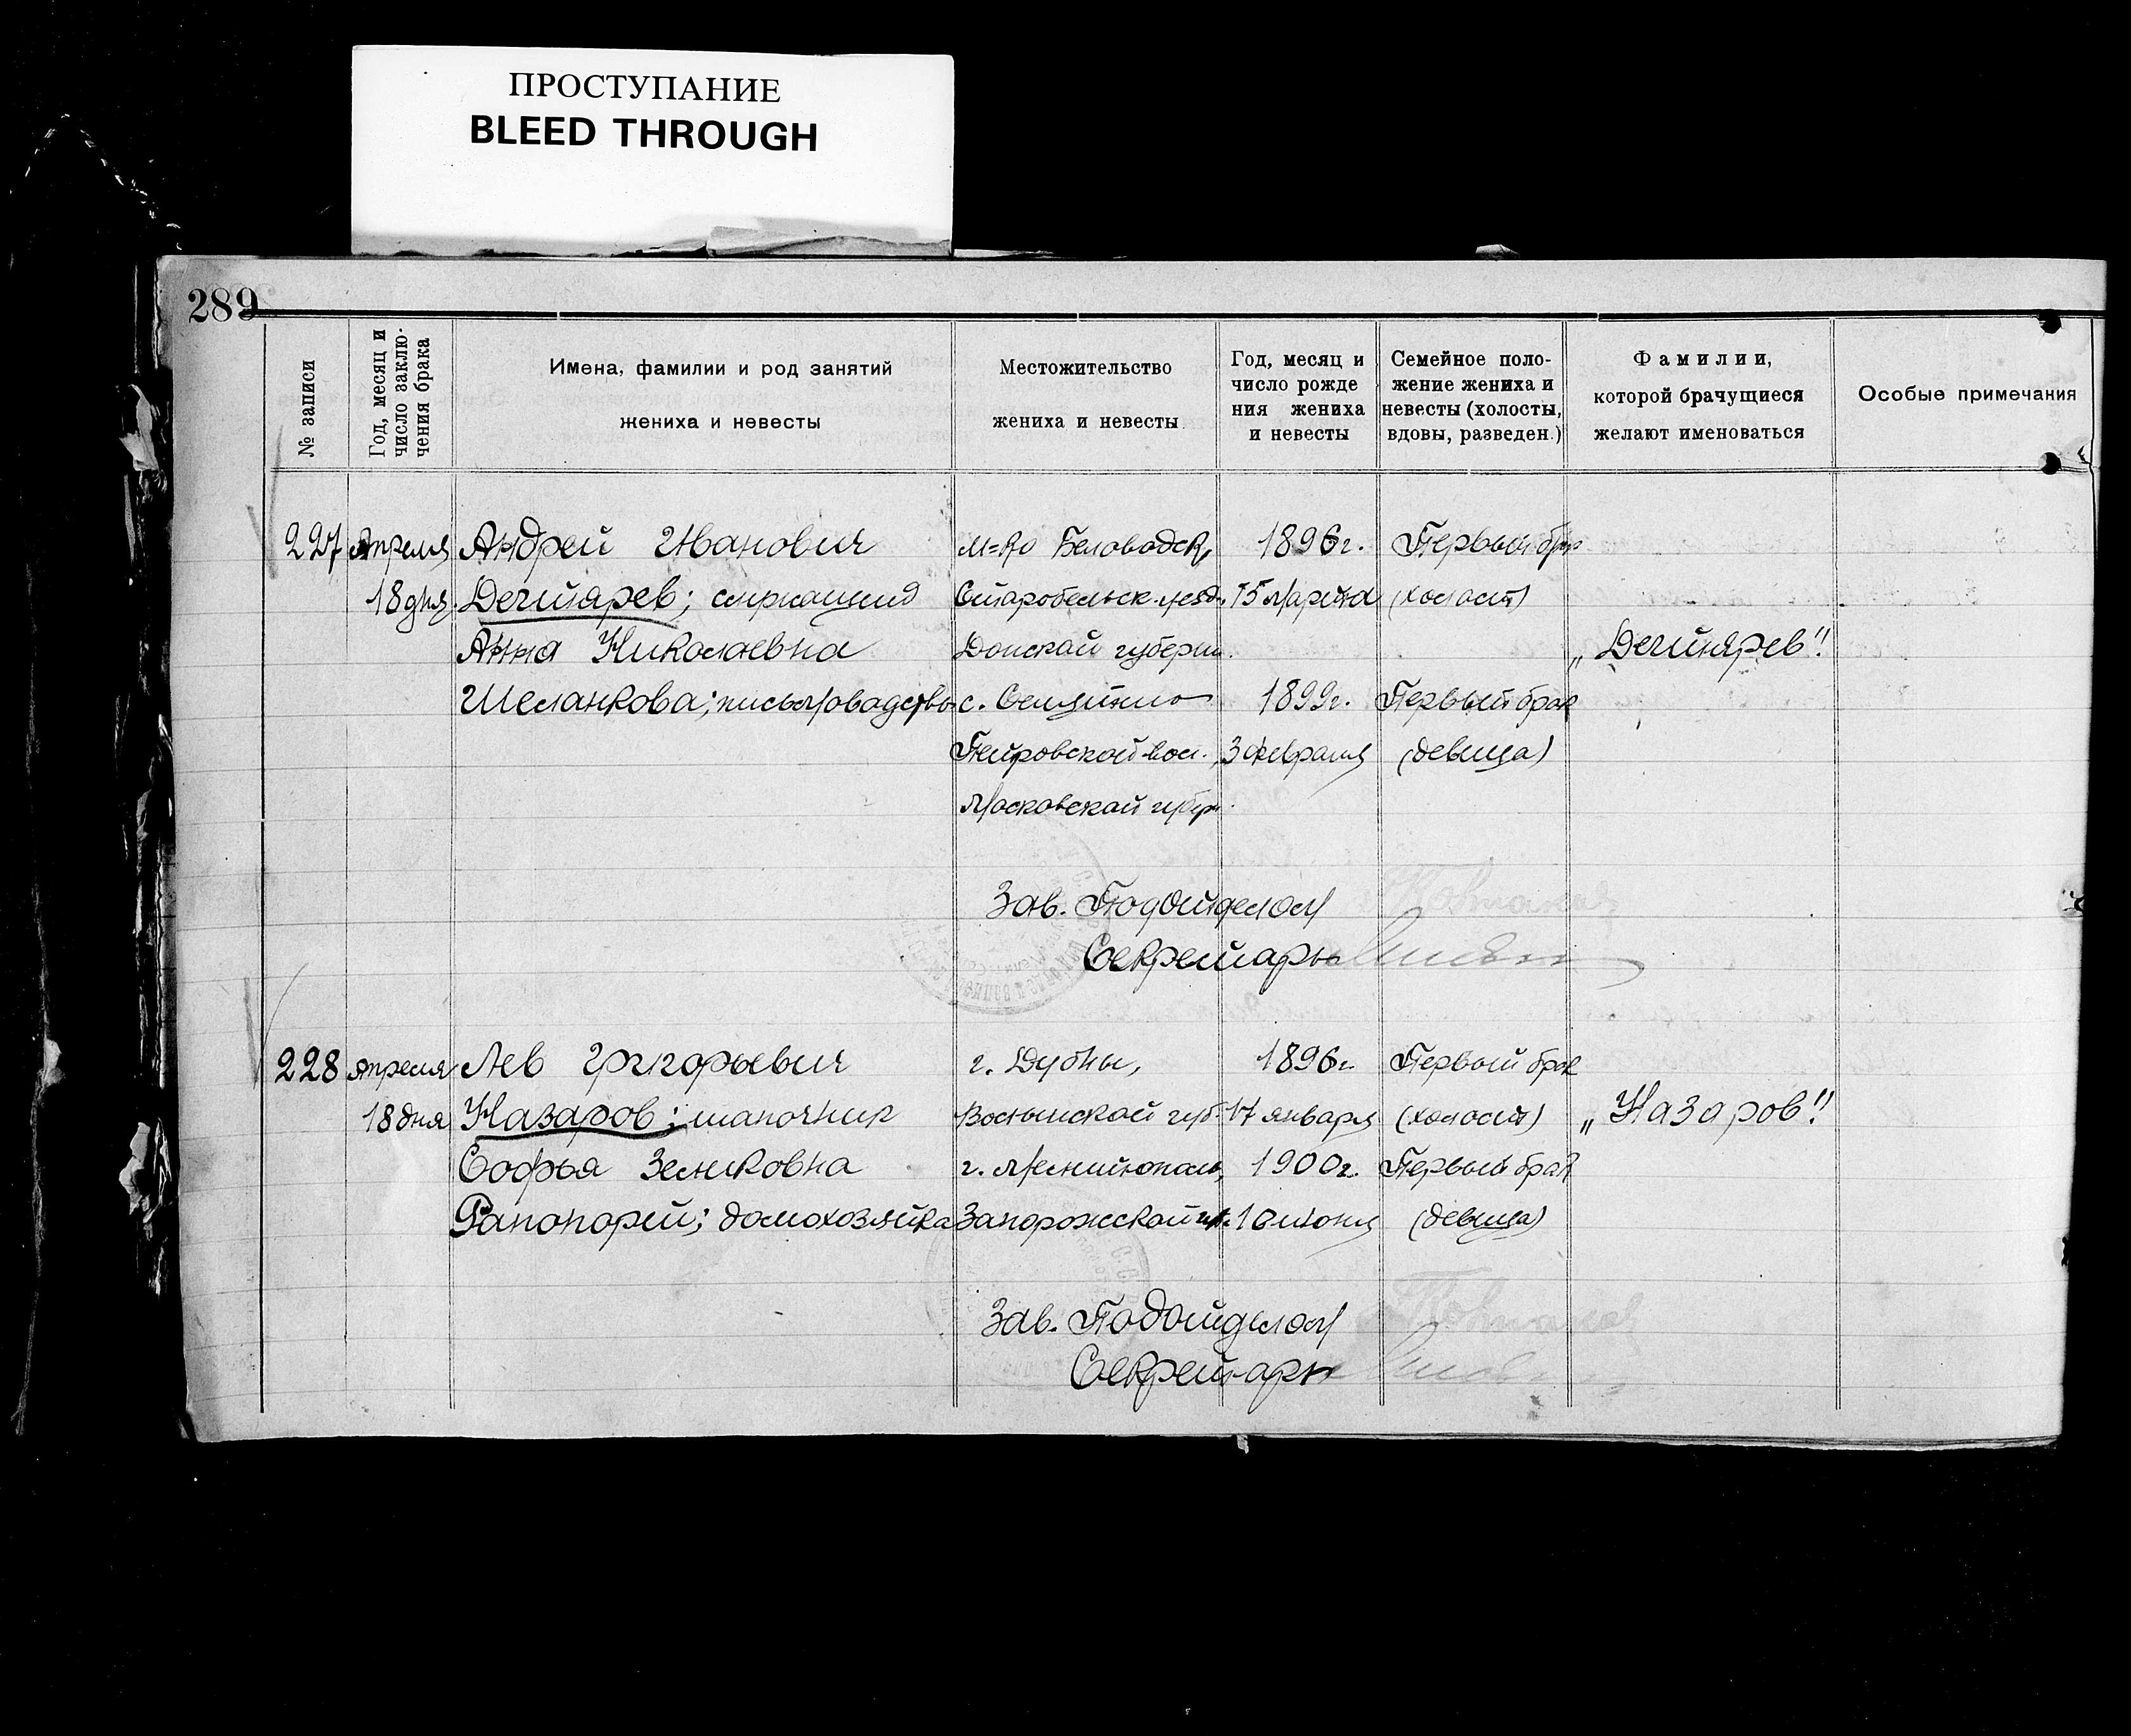 ПРОСТУПАНИЕ
BLEED THROUGH
289
№ записи
Год, месяц и
число заклю-
чения брака
Имена, фамилии и род занятий
жениха и невесты
Местожительство
жениха и невесты
Год, месяц и
число рожде
ния жениха
и невесты
Семейное поло-
жение жениха и
невесты (холосты,
вдовы, разведен.)
Фамилии,
которой брачущиеся
желают именоваться
Особые примечания
227 Апреля Андрей Иванович м=ко Беловодск, 1896г. Первый бр
18 дня Дегтярев; служащий Старобельск. уезд. 15 Марта (холост)
Анна Николаевна Донской губерни. „Дегтярев"
Шеланкова; письмоводство с. 1899г. Первый брак
Петровской вол. 3 февраля (девица)
Московской губер.
Зав. Подотделом
Секретарь
228 Апреля Лев Григорьевич г. Дубны, 1896г. Первый брак
18 дня Назаров; шапочник Волынской губ. 17 января (холост) „Назаров"
Софья Зеликовна г. Мелитополь, 1900г. Первый брак
Рапопорт; домохозяйка Запорожской 10 июня (девица)
Зав. Подотделом
Секретарь